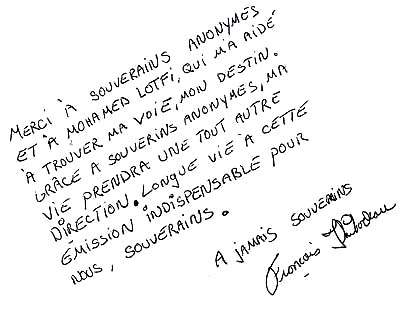 MERCI À SOUVERAINS ANONYMES
ET À MOHAMED LOTFI, QUI M'A AIDÉ
À TROUVER MA VOIE, MON DESTIN.
GRÂCE A SOUVERINS ANONYMES, MA
VIE PRENDRA UNE TOUT AUTRE
DIRECTION. LONGUE VIE À CETTE
ÉMISSION INDISPENSABLE POUR
NOUS, SOUVERAINS.
A JAMAIS SOUVERAINS
François